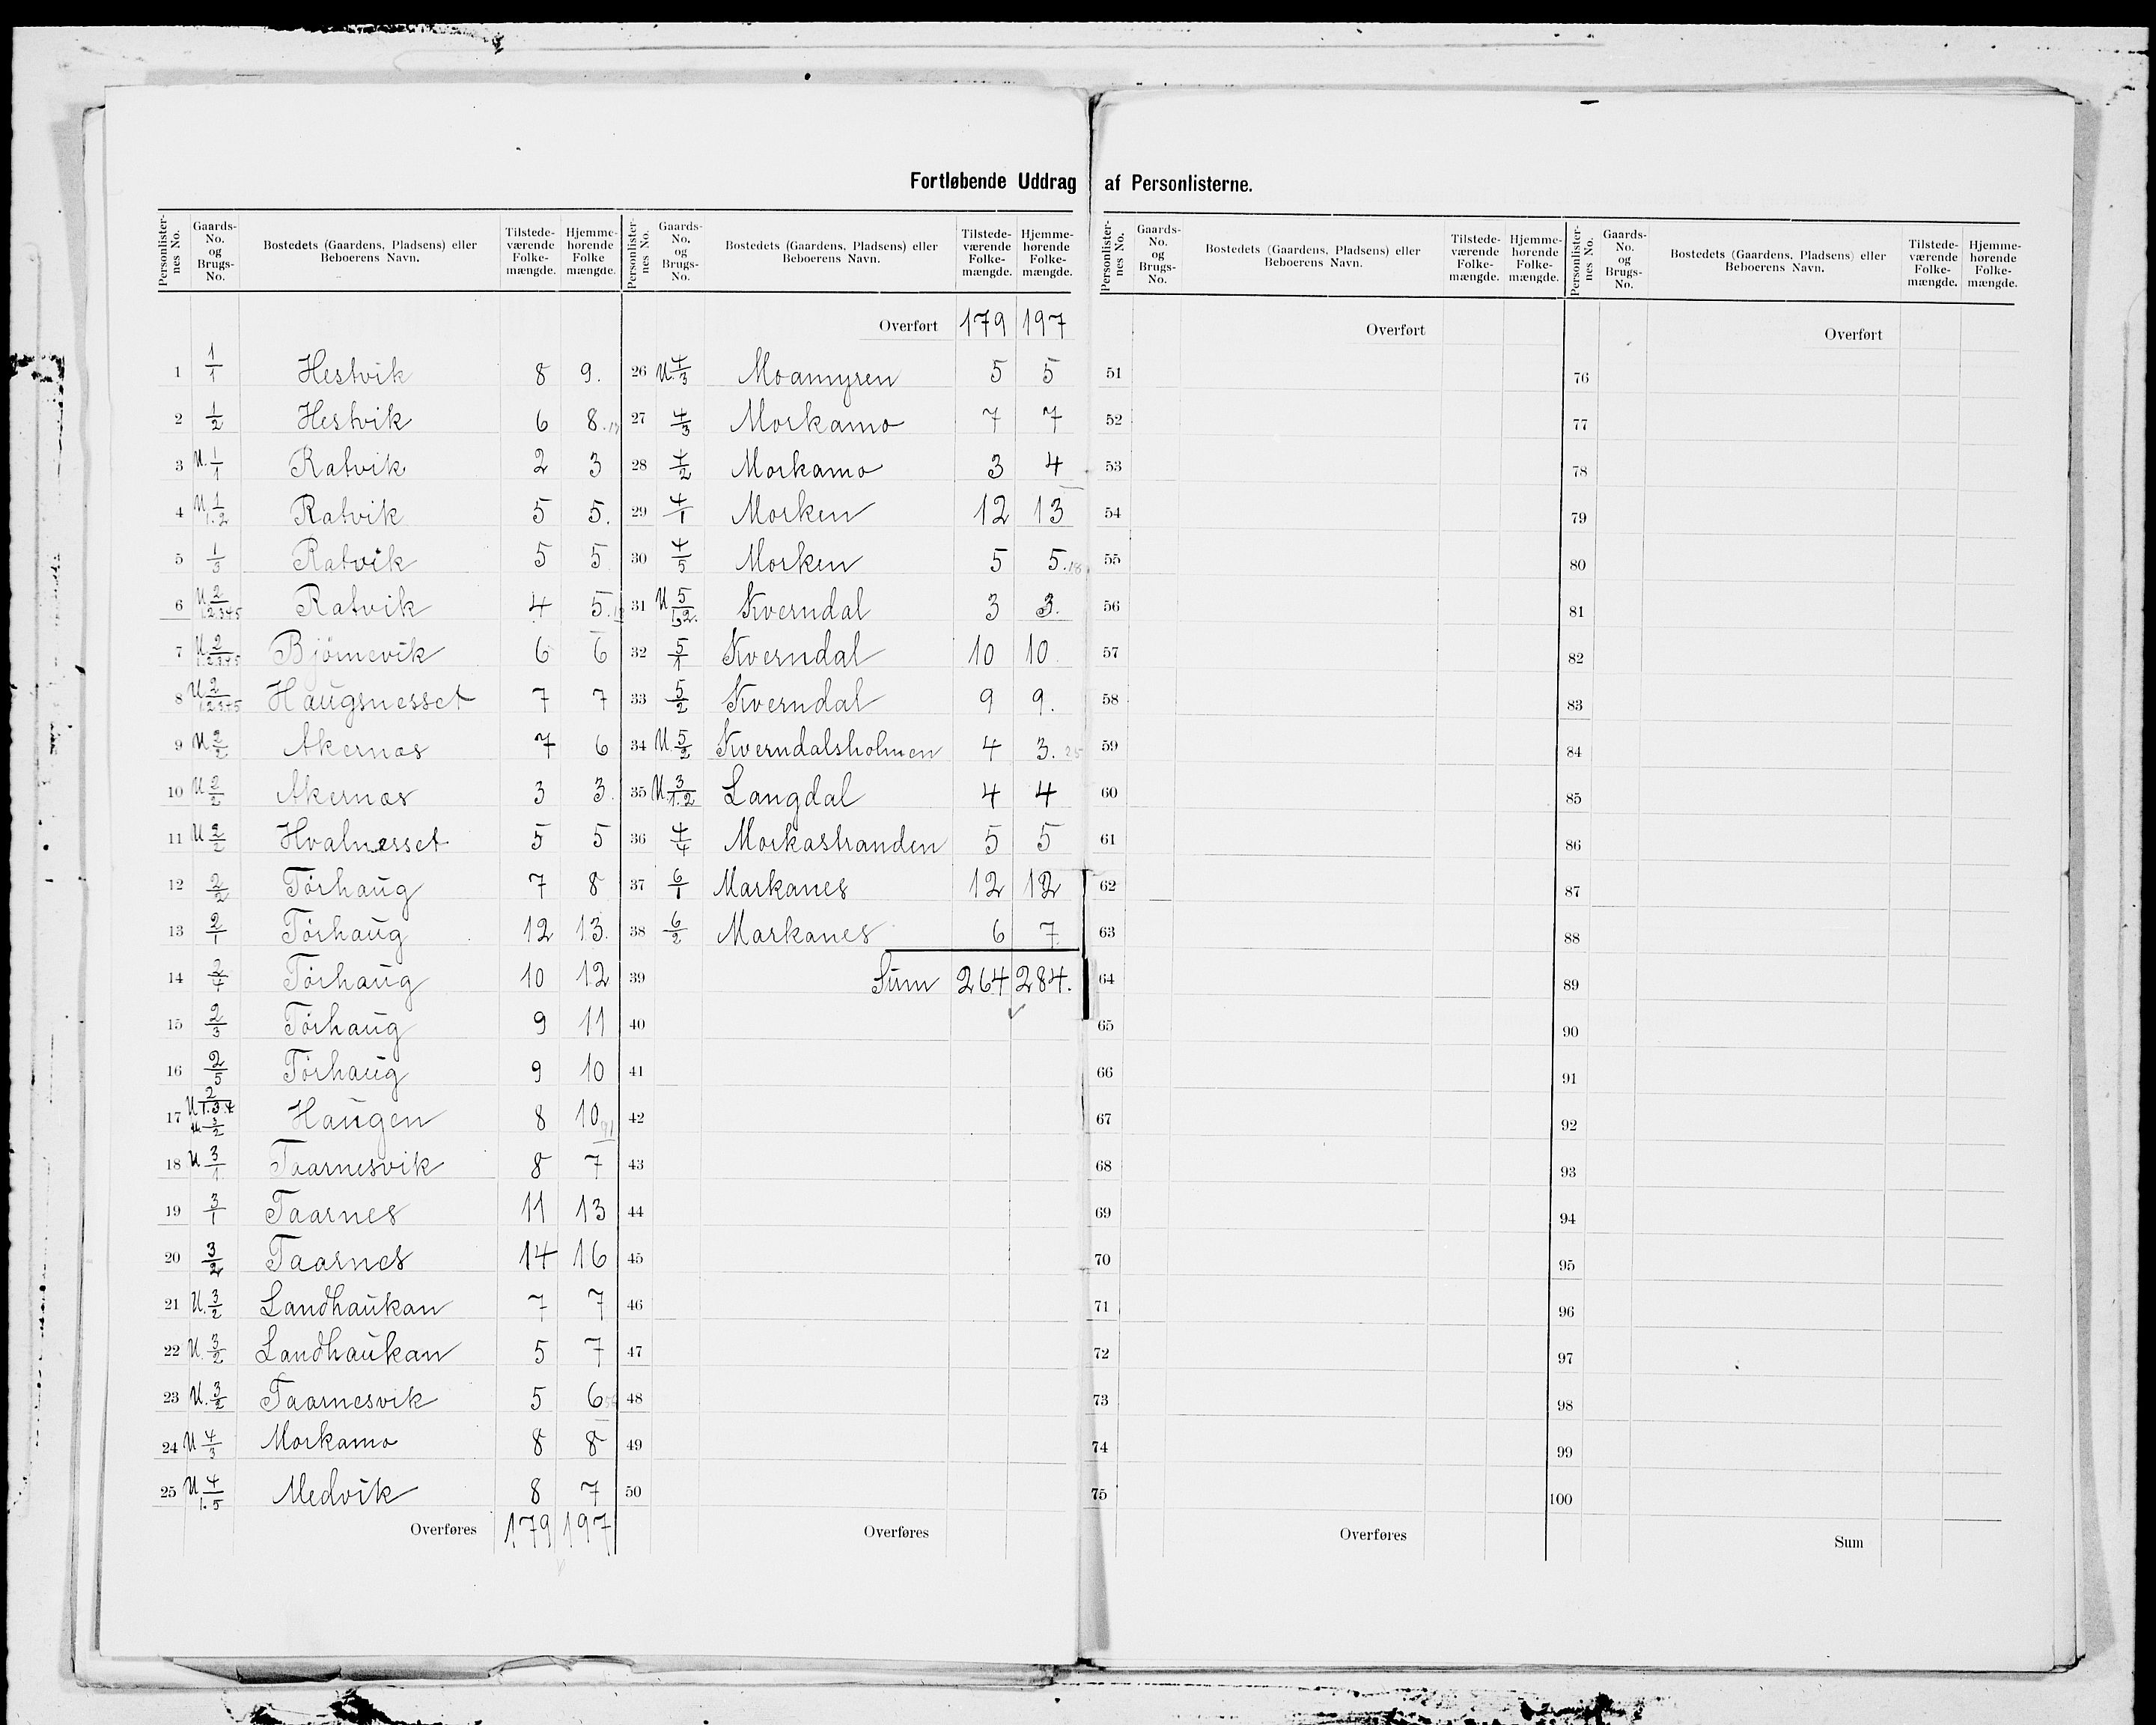 Fortløbende Uddrag af Personlisterne.
Personlister-nes No. | Gaards-No. og Brugs-No. | Bostedets (Gaardens, Pladsens) eller Beboerens Navn. | Tilstede-værende Folke-mængde. | Hjemme-hørende Folke mængde.
1 | 1/1 | Hestvik | 8 | 9.
2 | 1/2 | Hestvik | 6 | 8.
3 | U. 1/1 | Ratvik | 2 | 3
4 | U 1/1.2 | Ratvik | 5 | 5.
5 | 1/3 | Ratvik | 5 | 5
6 | U 2/1.2.3.4.5 | Ratvik | 4 | 5.
7 | U. 2/1.2.3.4.5 | Bjørnevik | 6 | 6
8 | U 2/1.2.3.4.5 | Haugsnesset | 7 | 7
9 | U 2/2 | Akernas | 7 | 6
10 | U 2/2 | Akernas | 3 | 3.
11 | U 2/2 | Hvalnesset | 5 | 5
12 | 2/2 | Tørhaug | 7 | 8
13 | 2/1 | Tørhaug | 12 | 13.
14 | 2/4 | Tørhaug | 10 | 12
15 | 2/3 | Tørhaug | 9 | 11
16 | 2/5 | Tørhaug | 9 | 10
17 | U 2/1.3.4 U. 3/2 | Haugen | 8 | 10 91
18 | U 3/1 | Taarnesvik | 8 | 7
19 | 3/1 | Taarnes | 11 | 13
20 | 3/2 | Taarnes | 14 | 16
21 | U. 3/2 | Landhaukan | 7 | 7
22 | U. 3/2 | Landhaukan | 5 | 7
23 | U. 3/2 | Taarnesvik | 5 | 6 56
24 | U 4/3 | Morkamo | 8 | 8
25 | U 4/1.5 | Medvik | 8 | 7
Overføres | 179 | 197
Personlister-nes No. | Gaards-No. og Brugs-No. | Bostedets (Gaardens, Pladsens) eller Beboerens Navn. | Tilstede-værende Folke-mængde. | Hjemme-hørende Folke-mængde.
Overført | 179 | 197
26 | U. 4/3 | Moamyren | 5 | 5
27 | 4/3 | Morkamo | 7 | 7
28 | 4/2 | Morkamo | 3 | 4
29 | 4/1 | Morken | 12 | 13
30 | 4/5 | Morken | 5 | 5. 18
31 | U 5/1.2. | Kverndal | 3 | 3.
32 | 5/1 | Kverndal | 10 | 10
33 | 5/2 | Kverndal | 9 | 9.
34 | U. 5/2 | Kverndalsholmen | 4 | 3. 25
35 | U. 3/1.2 | Langdal | 4 | 4
36 | 4/4 | Morkastranden | 5 | 5
37 | 6/1 | Markanes | 12 | 12
38 | 6/2 | Markanes | 6 | 7
39 | Sum | 264 | 284.
40
41
42
43
44
45
46
47
48
49
50
Overføres
Personlister-nes No. | Gaards-No. og Brugs-No. | Bostedets (Gaardens, Pladsens) eller Beboerens Navn. | Tilstede-værende Folke-mængde. | Hjemme-hørende Folke-mængde.
Overført
51
52
53
54
55
56
57
58
59
60
61
62
63
64
65
66
67
68
69
70
71
72
73
74
75
Overføres
Personlister-nes No. | Gaards-No. og Brugs-No. | Bostedets (Gaardens, Pladsens) eller Beboerens Navn. | Tilstede-værende Folke-mængde. | Hjemme-hørende Folke-mængde.
Overført
76
77
78
79
80
81
82
83
84
85
86
87
88
89
90
91
92
93
94
95
96
97
98
99
100
Sum